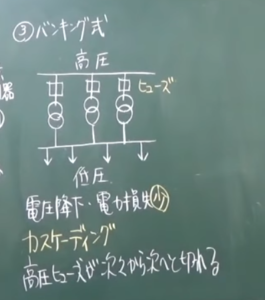 ③バンキング式
高圧
ヒューズ
器
低圧
電圧降下・電力損失 少
カスケーディング
高圧ヒューズが次々から次へと切れる